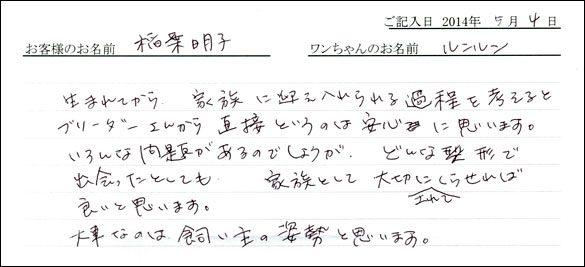 ご記入日 2014年 5月 4日
お客様のお名前 稲葉明子 ワンちゃんのお名前 ルンルン
生まれてから、家族に迎え入れられる過程を考えると
ブリーダーさんから直接というのは安心に思います。
いろんな問題があるのでしょうが、どんな形で
出会ったとしても 家族として大切にくらせれば
良いと思います。
大事なのは、飼い主の姿勢と思います。